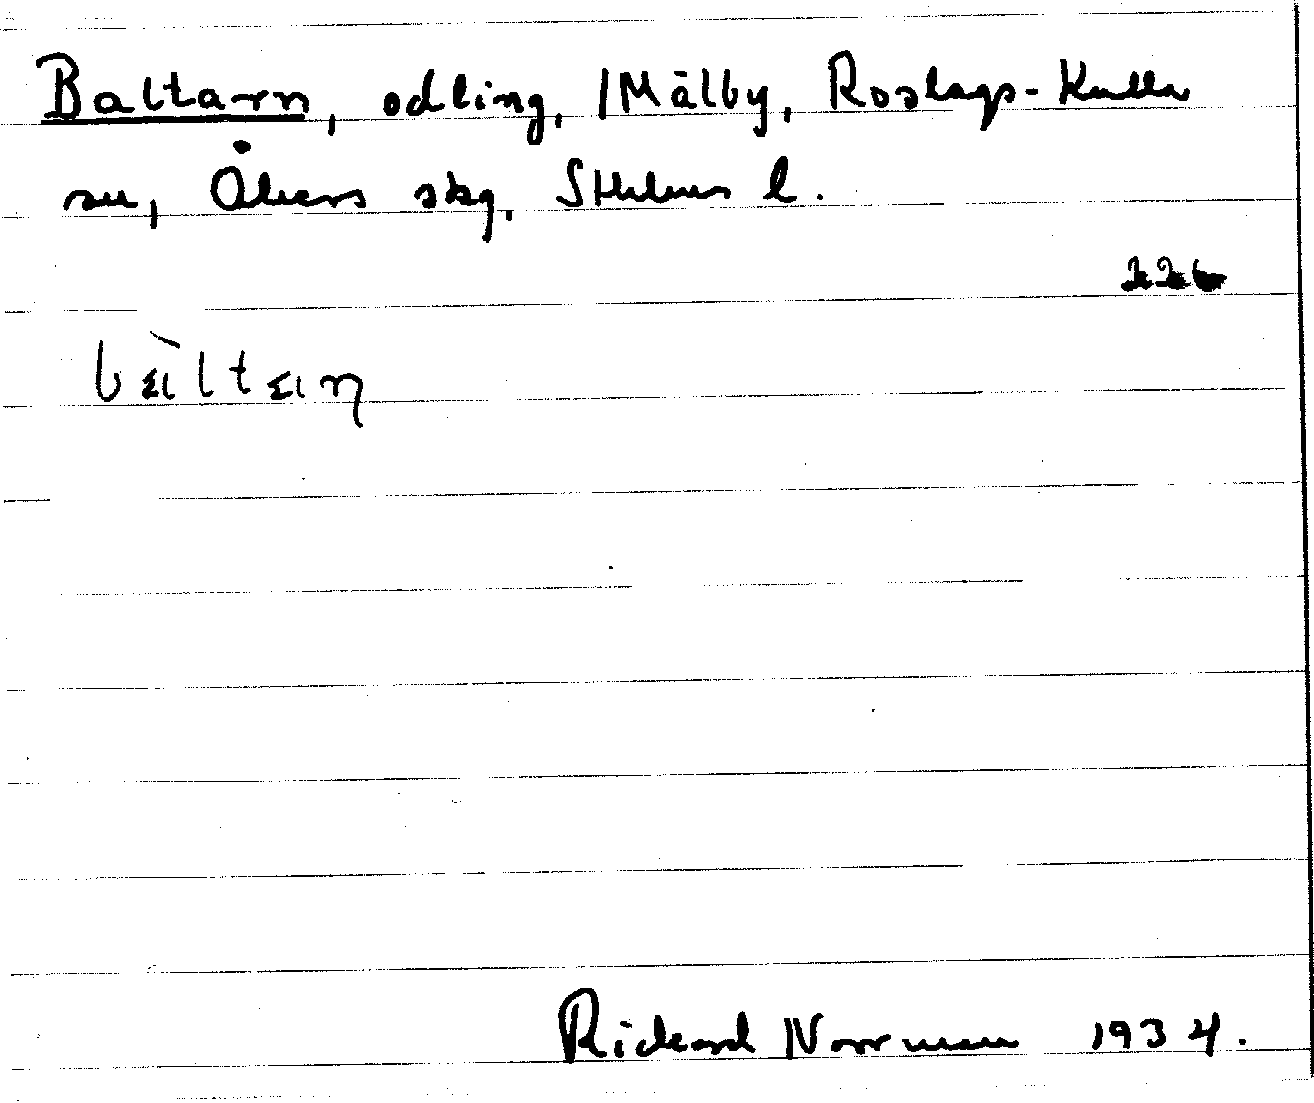 Baltarn, odling, /Målby, Roslags-Kulla
sn, Åkers skg, Sthlms l.
Rickard Norrman 1934.